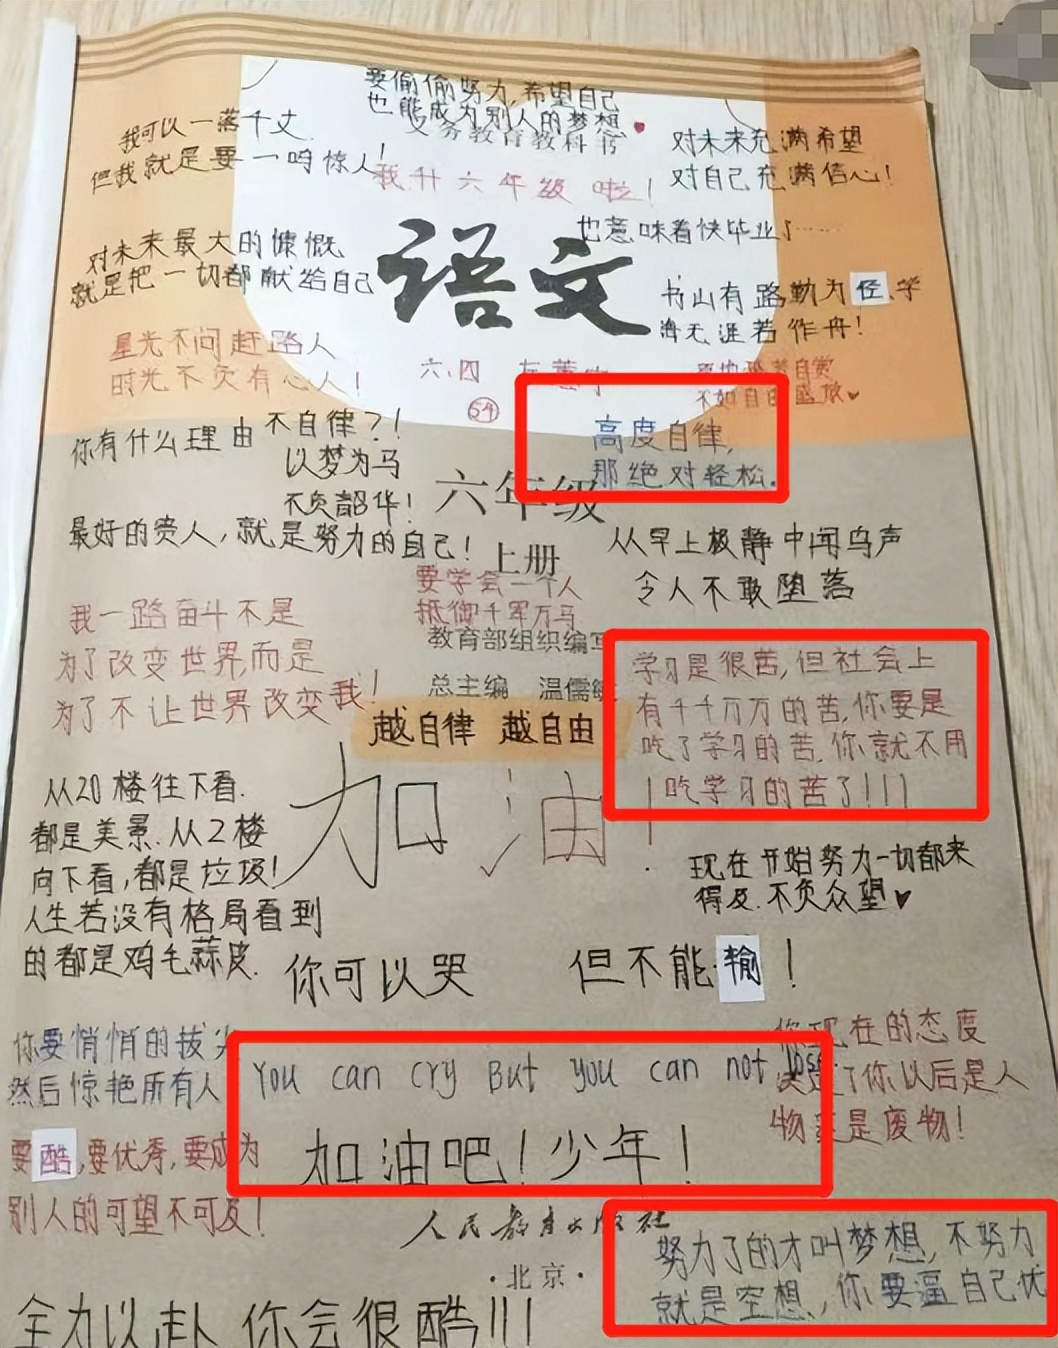 要偷偷努力,希望自己
也能成为别人的梦想
义务教育教科书
我可以一落千丈
但我就是要一鸣惊人!
我升六年级啦!
对未来充满希望
对自己充满信心!
也意味着快毕业了……
对未来最大的慷慨
就是把一切都献给自己
语文
书山有路勤为径,学
海无涯若作舟!
星光不问赶路人
时光不负有心人!
六、四
54
孤芳自赏
不如自由盛放
高度自律,
那绝对轻松.
你有什么理由不自律?!
以梦为马
不负韶华!
六年级
上册
最好的贵人,就是努力的自己!
从早上极静中闻鸟声
令人不敢堕落
要学会一个人
抵御千军万马
教育部组织编写
总主编 温儒敏
我一路奋斗不是
为了改变世界,而是
为了不让世界改变我!
学习是很苦,但社会上
有千千万万的苦,你要是
吃了学习的苦,你就不用
吃学习的苦了!!!
越自律 越自由
加油!
从20楼往下看.
都是美景.从2楼
向下看,都是垃圾!
人生若没有格局看到
的都是鸡毛蒜皮.
现在开始努力一切都来
得及.不负众望
你可以哭 但不能输!
你要悄悄的拔尖
然后惊艳所有人
You can cry But you can not lose
加油吧!少年!
你现在的态度
决定了你以后是人
物还是废物!
要酷,要优秀,要成为
别人的可望不可及!
人民教育出版社
·北京·
努力了的才叫梦想,不努力
就是空想,你要逼自己优
全力以赴 你会很酷!!!